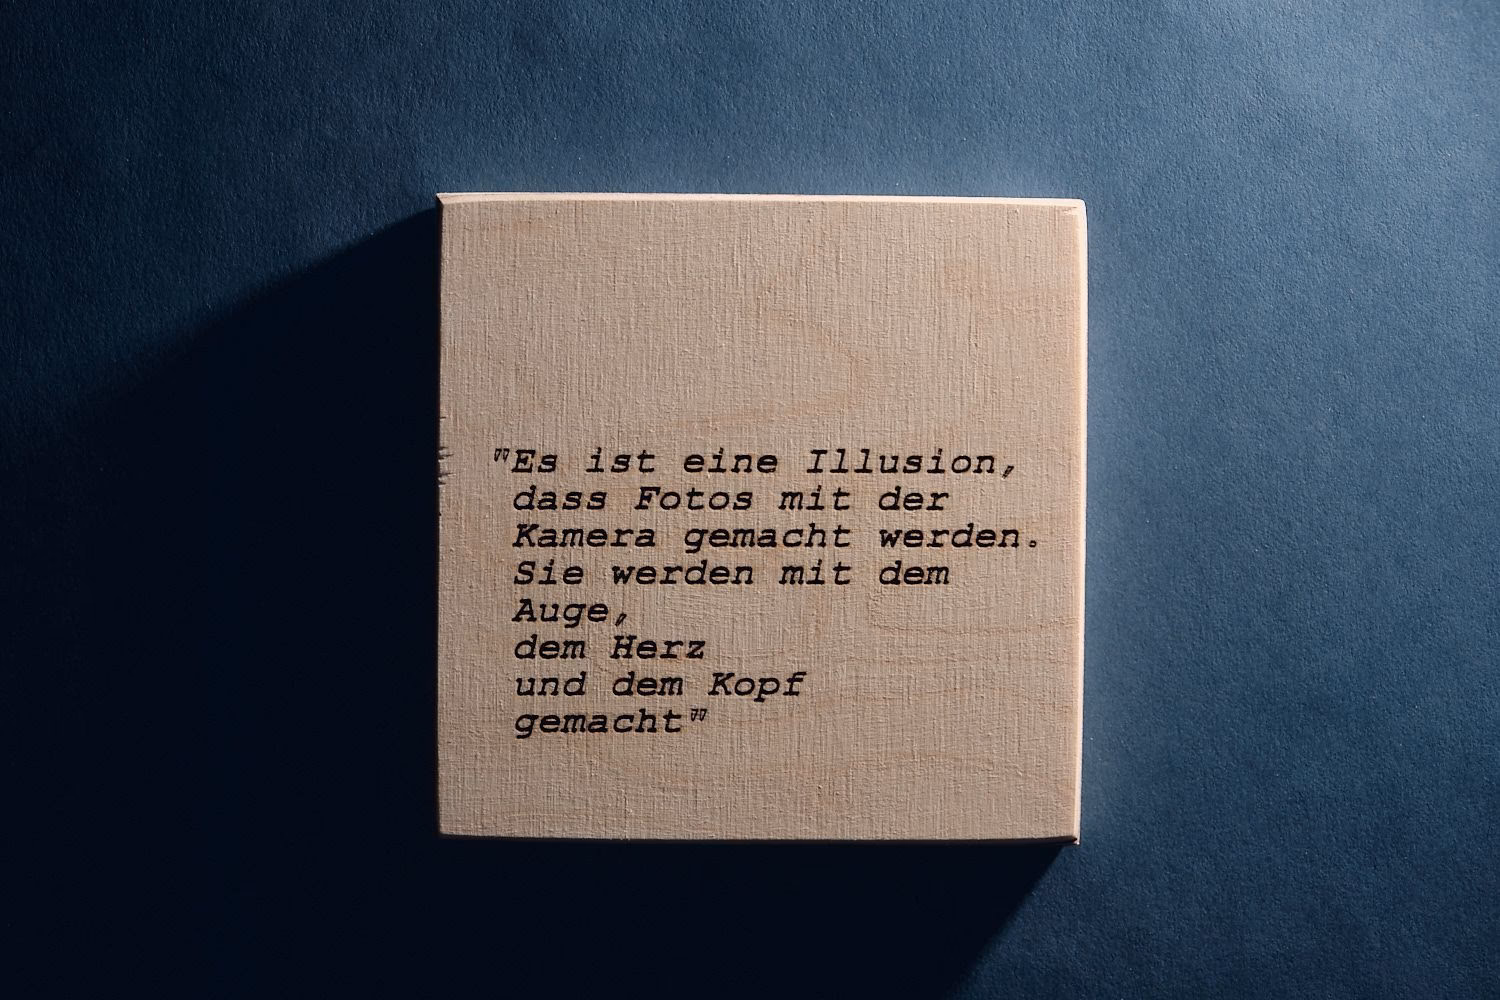 "Es ist eine Illusion,
dass Fotos mit der
Kamera gemacht werden.
Sie werden mit dem
Auge,
dem Herz
und dem Kopf
gemacht"